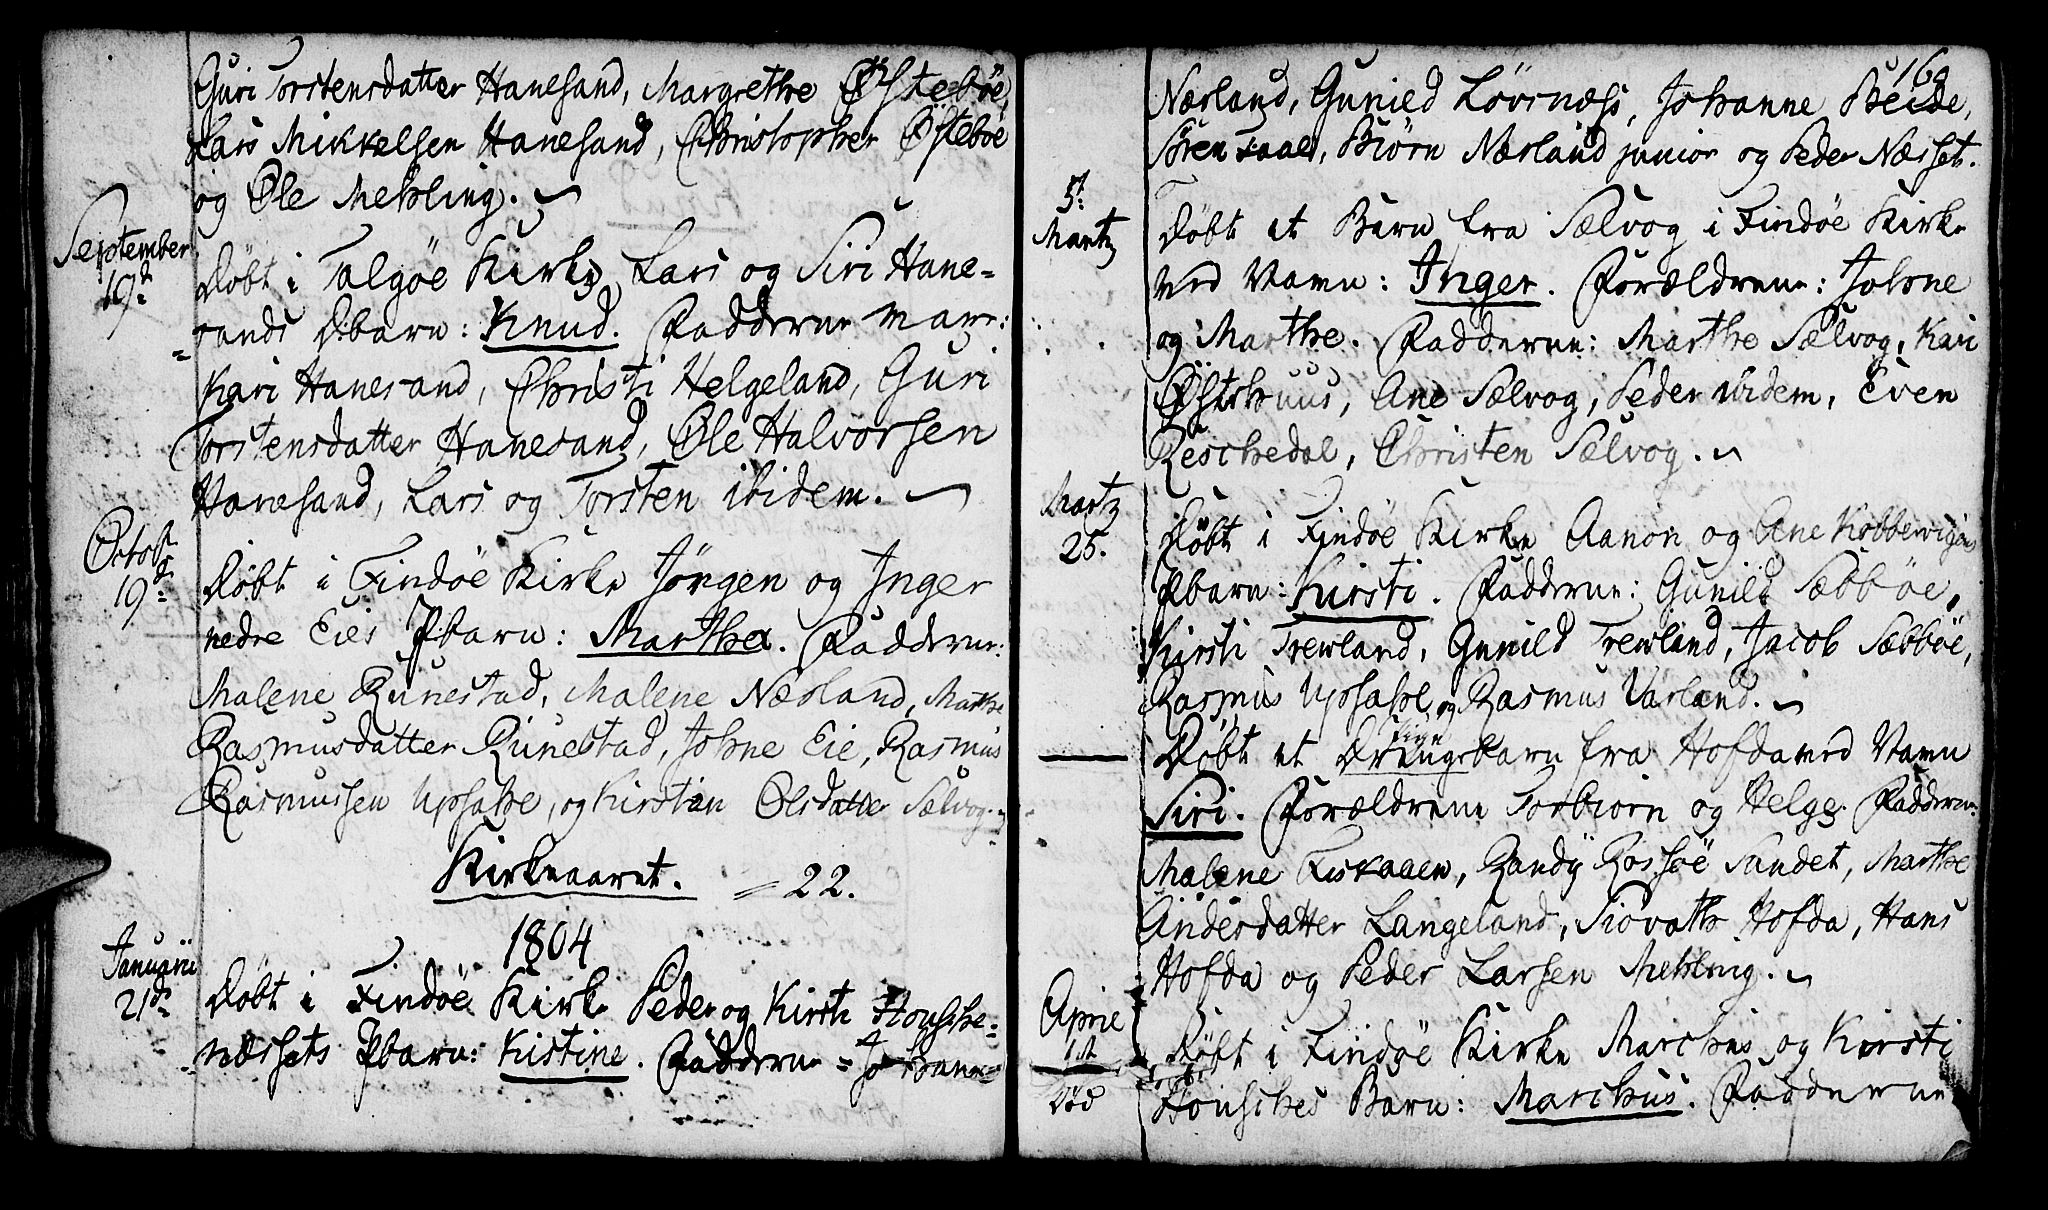 Guri Torstensdatter Hanesand, Margrethe Østebøe,
Lars Mikkelsen Hanesand, Christopher Østebøe
og Ole Mehling.
September
19d.
Døbt i Talgøe Kirke Lars og Siri Hane-
sands Dbarn: Knud. Fadderne vare:
Kari Hanesand, Christi Helgeland, Guri
Torstensdatter Hanesand, Ole Halvorsen
Hanesand, Lars og Torsten ibidem.
Octob.
19d.
Døbt i Findøe Kirke Jørgen og Inger
nedre Eies Pbarn: Marthe. Fadderne:
Malene Runestad, Malene Næsland, Marthe
Rasmusdatter Runestad, Johne Eie, Rasmus
Rasmussen Upsahe, og Kirsten Olsdatter Sælvog.
Kirkeaaret. = 22.
1804
Januarii
21d.
Døbt i Findøe Kirke Peder og Kirsti Housche-
næssets Pbarn: Kistine. Fadderne = Johanne
169
Næsland, Gunild Løvsnæss, Johanne Beide,
Søren Faae, Biørn Næsland junior og Peder Næsset.
5t.
Martz
Døbt et Barn fra Sælvog i Findøe Kirke
ved Navn: Inger. Forældrene: Johne
og Marthe. Fadderne: Marthe Sælvog, Kari
Østhuus, Ane Sælvog, Peder ibidem, Even
Reschedal, Christen Sælvog.
Martz
25.
Døbt i Findøe Kirke Aanon og Ane Kobbervigs
Pbarn: Kirsti. Fadderne: Gunild Sæbbøe,
Kirsti Trewland, Gunild Trewland, Jacob Sæbbøe,
Rasmus Upsahe og Rasmus Varland.
Pige
Døbt et Drengebarn fra Hofda ved Navn
Siri. Forældrene Torbiorn og Helge. Fadderne:
Malene Fiskaaen, Randy Rossøe Sandet, Marthe
Andersdatter Langeland, Siovath Hofda, Hans
Hofda og Peder Larsen Mehling.
Aprie
1st
Død
Døbt i Findøe Kirke Marchus og Kirsti
Housches Barn: Marchus. Fadderne